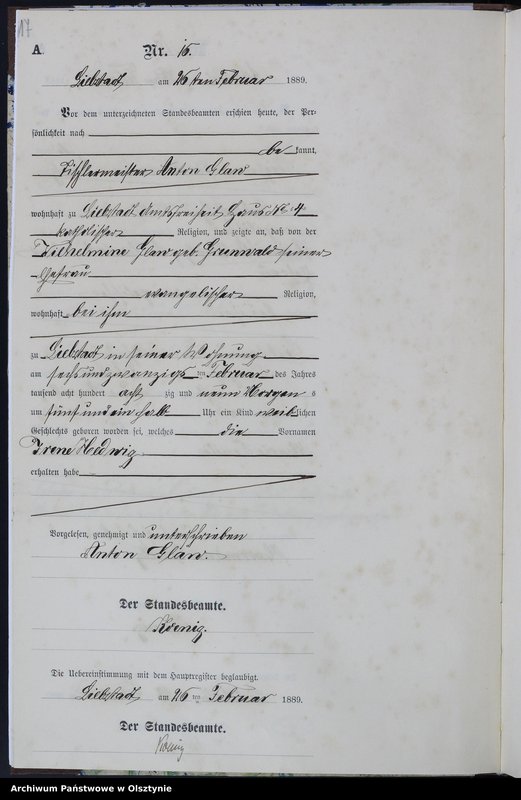 17
A.
Nr. 15.
Liebstadt am 26ten Februar 1889.
Vor dem unterzeichneten Standesbeamten erschien heute, der Per-
sönlichkeit nach
be kannt,
Tischlermeister Anton Glaw
wohnhaft zu Liebstadt Amtsfreiheit Haus No 4
katholischer Religion, und zeigte an, daß von der
Wilhelmine Glaw geb. Grunwald seiner
Ehefrau
evangelischer Religion,
wohnhaft bei ihm
zu Liebstadt in seiner Wohnung
am sechsundzwanzigs ten Februar des Jahres
tausend acht hundert acht zig und neun Morgen s
um fünf und ein halb Uhr ein Kind weiblichen
Geschlechts geboren worden sei, welches die Vornamen
Irene Hedwig
erhalten habe
Vorgelesen, genehmigt und unterschrieben
Anton Glaw.
Der Standesbeamte.
Koenig.
Die Uebereinstimmung mit dem Hauptregister beglaubigt.
Liebstadt am 26 ten Februar 1889.
Der Standesbeamte.
Koenig
Archiwum Państwowe w Olsztynie